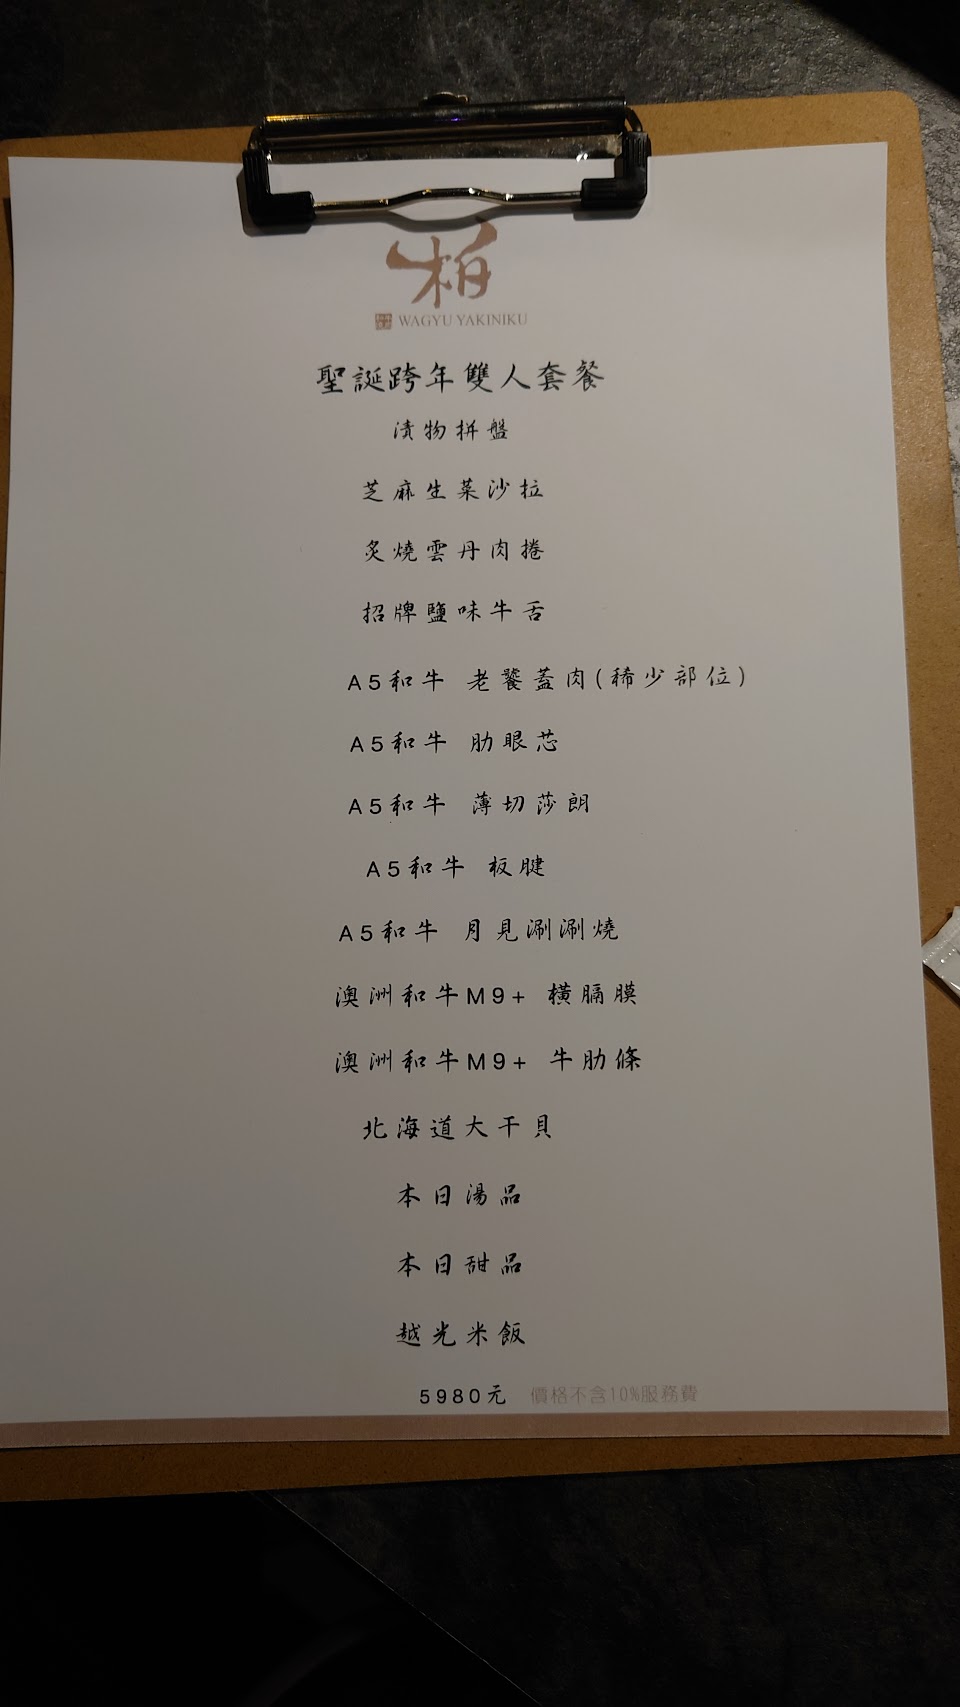 柏
WAGYU YAKINIKU
聖誕跨年雙人套餐
漬物拼盤
芝麻生菜沙拉
炙燒雲丹肉捲
招牌鹽味牛舌
A5和牛 老饕蓋肉(稀少部位)
A5和牛 肋眼芯
A5和牛 薄切莎朗
A5和牛 板腱
A5和牛 月見涮涮燒
澳洲和牛M9+ 橫膈膜
澳洲和牛M9+ 牛肋條
北海道大干貝
本日湯品
本日甜品
越光米飯
5980元 價格不含10%服務費